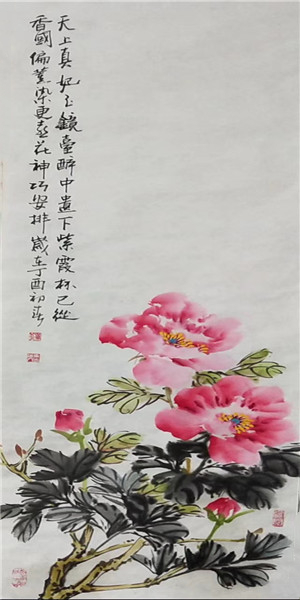 天上真妃玉鏡臺醉中遺下紫霞杯已從
香國偏薰染更喜花神巧安排歲在丁酉初春